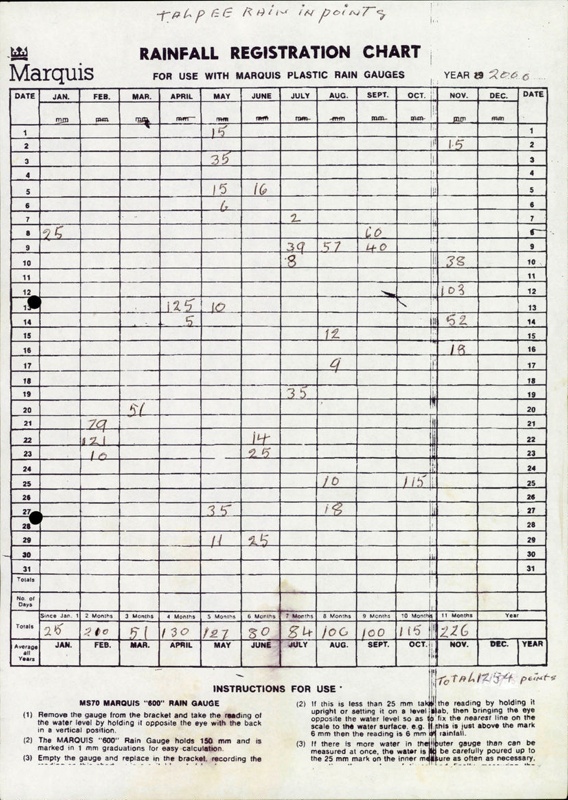 TALPEE RAIN IN POINTS
RAINFALL REGISTRATION CHART
Marquis
FOR USE WITH MARQUIS PLASTIC RAIN GAUGES YEAR 2000
DATE JAN. FEB. MAR. APRIL MAY JUNE JULY AUG. SEPT. OCT. NOV. DEC. DATE
mm mm mm mm mm mm mm mm mm mm mm mm
1 15 1
2 15 2
3 35 3
4 4
5 15 16 5
6 6 6
7 2 7
8 25 60 8
9 39 57 40 9
10 8 38 10
11 11
12 103 12
13 125 10 13
14 5 52 14
15 12 15
16 18 16
17 9 17
18 18
19 35 19
20 51 20
21 79 21
22 121 14 22
23 10 25 23
24 24
25 10 115 25
26 26
27 35 18 27
28 28
29 11 25 29
30 30
31 31
Totals
No. of Days
Since Jan. 1 2 Months 3 Months 4 Months 5 Months 6 Months 7 Months 8 Months 9 Months 10 Months 11 Months Year
Totals 25 210 51 130 127 80 84 106 100 115 226
Average all Years JAN. FEB. MAR. APRIL MAY JUNE JULY AUG. SEPT. OCT. NOV. DEC. YEAR
TOTAL points
INSTRUCTIONS FOR USE
MS70 MARQUIS "600" RAIN GAUGE
(1) Remove the gauge from the bracket and take the reading of
the water level by holding it opposite the eye with the back
in a vertical position.
(2) The MARQUIS "600" Rain Gauge holds 150 mm and is
marked in 1 mm graduations for easy calculation.
(3) Empty the gauge and replace in the bracket, recording the
(2) If this is less than 25 mm take the reading by holding it
upright or setting it on a level slab, then bringing the eye
opposite the water level so as to fix the nearest line on the
scale to the water surface, e.g. If this is just above the mark
6 mm then the reading is 6 mm of rainfall.
(3) If there is more water in the outer gauge than can be
measured at once, the water is to be carefully poured up to
the 25 mm mark on the inner measure as often as necessary,